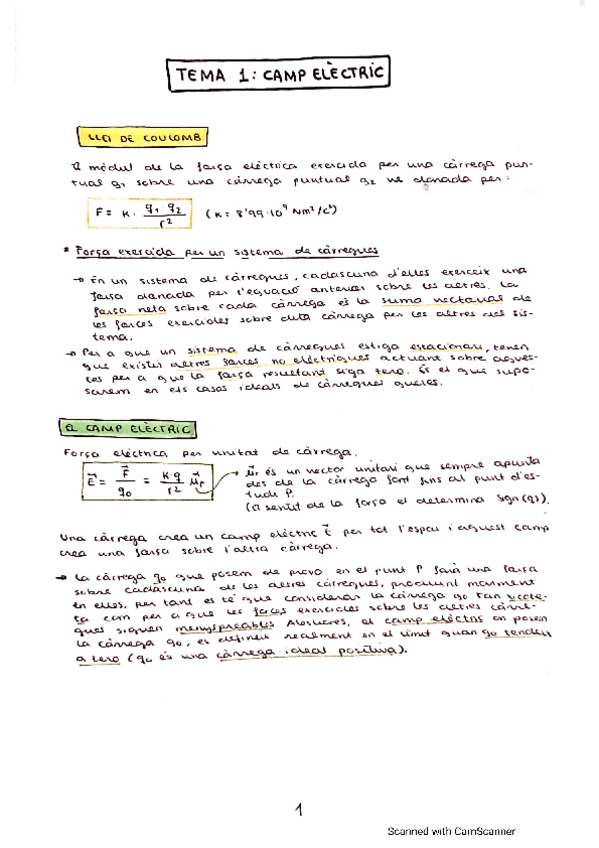 TEMA 1: CAMP ELÈCTRIC
LLEI DE COULOMB
El mòdul de la força elèctrica exercida per una càrrega pun-
tual q1 sobre una càrrega puntual q2 ve donada per:
F = K · q1 · q2 / r² (K = 8'99·10⁹ Nm²/C²)
* Força exercida per un sistema de càrregues
→ En un sistema de càrregues, cadascuna d'elles exerceix una
força donada per l'equació anterior sobre les altres. La
força neta sobre cada càrrega és la suma vectorial de
les forces exercides sobre dita càrrega per les altres del sis-
tema.
→ Per a que un sistema de càrregues estiga estacionari, tenen
que existir altres forces no elèctriques actuant sobre aques-
tes per a que la força resultant siga zero. És el que supo-
sarem en els casos ideals de càrregues quetes.
EL CAMP ELÈCTRIC
Força elèctrica per unitat de càrrega.
E⃗ = F⃗ / q0 = K·q / r² u⃗r → u⃗r és un vector unitari que sempre apunta
des de la càrrega font fins al punt d'es-
tudi P.
(El sentit de la força el determina sign(q)).
Una càrrega crea un camp elèctric E⃗ per tot l'espai i aquest camp
crea una força sobre l'altra càrrega.
→ La càrrega q0 que posem de prova en el punt P farà una força
sobre cadascuna de les altres càrregues, produint moviment
en elles, per tant es té que considerar la càrrega q0 tan
com per a que les forces exercides sobre les altres càrre-
gues siguen menyspreables. Aleshores, el camp elèctric on posem
la càrrega q0, es defineix realment en el límit quan q0 tendeix
a zero (q0 és una càrrega ideal positiva).
1
Scanned with CamScanner